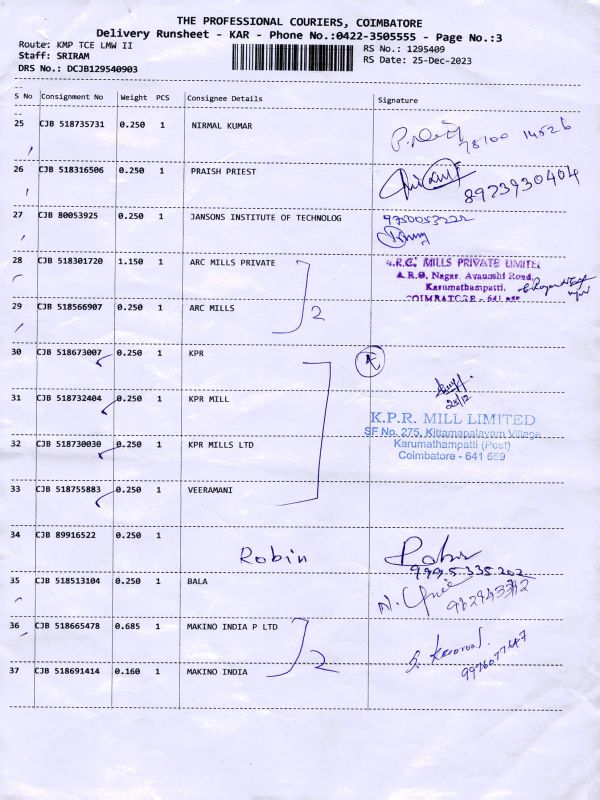 THE PROFESSIONAL COURIERS, COIMBATORE
Delivery Runsheet - KAR - Phone No.:0422-3505555 - Page No.:3
Route: KMP TCE LMW II
RS No.: 1295409
Staff: SRIRAM
RS Date: 25-Dec-2023
DRS No.: DCJB129540903
S No Consignment No Weight PCS Consignee Details Signature
25 CJB 518735731 0.250 1 NIRMAL KUMAR
78100 14526
26 CJB 518316506 0.250 1 PRAISH PRIEST
8973930404
27 CJB 80053925 0.250 1 JANSONS INSTITUTE OF TECHNOLOG
28 CJB 518301720 1.150 1 ARC MILLS PRIVATE
MILLS PRIVATE LIMITE
Nagar, Avanashi Road,
Karumathampatti,
COIMBATORE - 641
29 CJB 518566907 0.250 1 ARC MILLS
2
30 CJB 518673007 0.250 1 KPR
31 CJB 518732404 0.250 1 KPR MILL
K.P.R. MILL LIMITED
SF No. 275, Kittamapalayam Village
Karumathampatti (Post)
Coimbatore - 641 659
32 CJB 518730030 0.250 1 KPR MILLS LTD
33 CJB 518755883 0.250 1 VEERAMANI
34 CJB 89916522 0.250 1
Robin
999.5.335.202
35 CJB 518513104 0.250 1 BALA
36 CJB 518665478 0.685 1 MAKINO INDIA P LTD
2
37 CJB 518691414 0.160 1 MAKINO INDIA